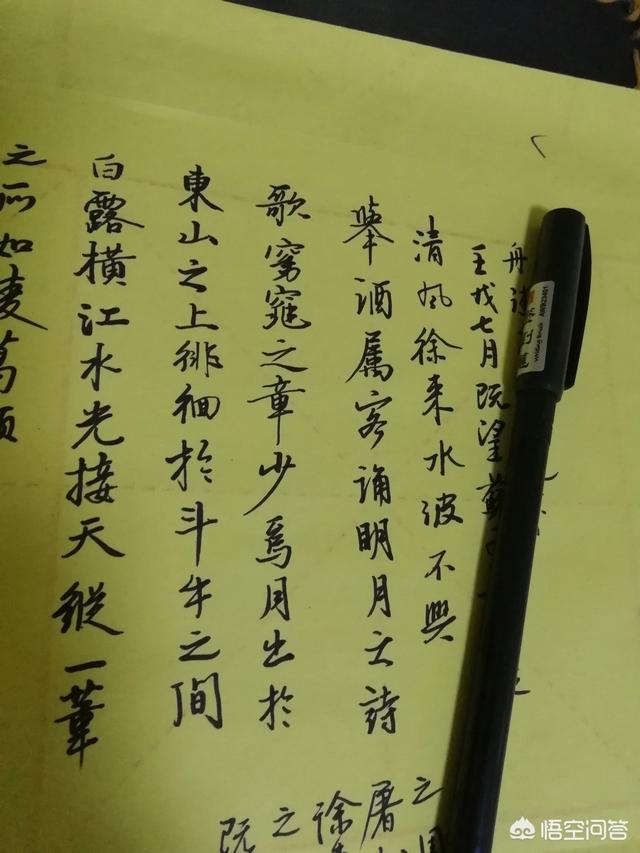 舟
壬戌七月既望蘇
清風徐来水波不興
舉酒属客誦明月之詩
歌窈窕之章少焉月出於
東山之上徘徊於斗牛之間
白露橫江水光接天縱一葦
之所如凌萬頃
之
屠
徐
之
既
悟空问答